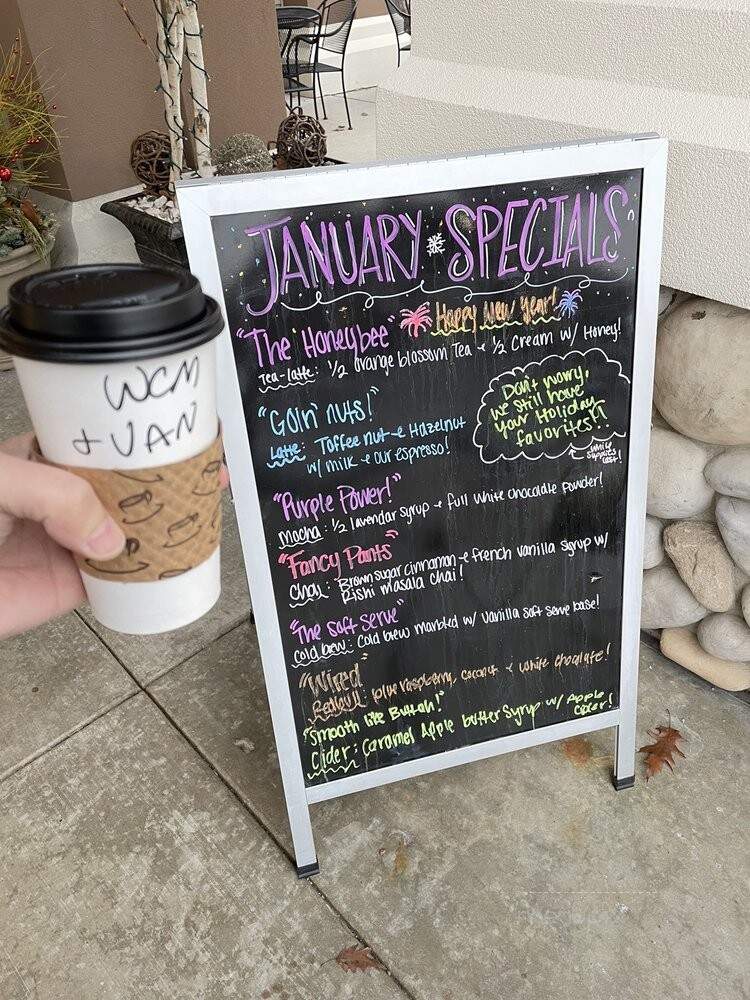 WCM
+ VAN
JANUARY SPECIALS
"The Honeybee" Happy New Year!
Tea-latte: 1/2 orange blossom Tea + 1/2 Cream w/ Honey!
"Goin' nuts!"
Latte: Toffee nut + Hazelnut
w/ milk + our espresso!
Don't worry,
we still have
your Holiday
favorites!!
while
supplies
last!
"Purple Power!"
Mocha: 1/2 lavendar syrup + full white chocolate powder!
"Fancy Pants"
Chai: Brown sugar cinnamon + french vanilla syrup w/
Rishi masala chai!
"The soft serve"
cold brew: cold brew marbled w/ vanilla soft serve base!
"Wired"
Redbull: blue raspberry, coconut + white chocolate!
"Smooth like Buttah!"
Cider: Caramel Apple butter syrup w/ Apple
Cider!